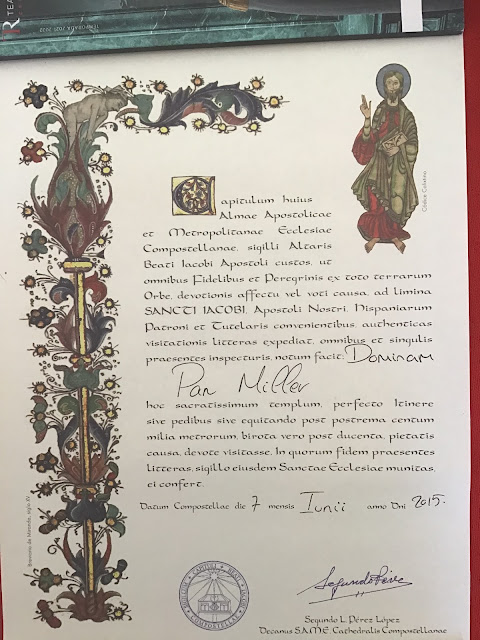 TEMPORADA 2021-2022
Capitulum huius
Almae Apostolicae
et Metropolitanae Ecclesiae
Compostellanae, sigilli Altaris
Beati Iacobi Apostoli custos, ut
omnibus Fidelibus et Peregrinis ex toto terrarum
Orbe, devotionis affectu vel voti causa, ad limina
SANCTI IACOBI, Apostoli Nostri, Hispaniarum
Patroni et Tutelaris convenientibus, authenticas
visitationis litteras expediat, omnibus et singulis
praesentes inspecturis, notum facit: Dominam
Pan Miller
hoc sacratissimum templum, perfecto Itinere
sive pedibus sive equitando post postrema centum
milia metrorum, birota vero post ducenta, pietatis
causa, devote visitasse. In quorum fidem praesentes
litteras, sigillo eiusdem Sanctae Ecclesiae munitas,
ei confert.
Datum Compostellae die 7 mensis Iunii anno Dni 2015.
Segundo L. Pérez López
Decanus S.A.M.E. Cathedralis Compostellanae
Códice Calixtino
Breviario de Miranda, siglo XV